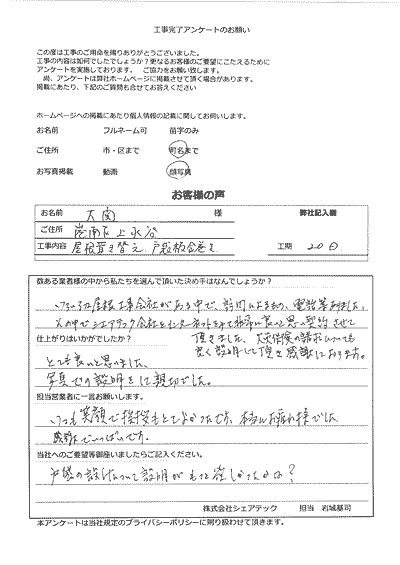 工事完了アンケートのお願い
この度は工事のご用命を賜りありがとうございました。
工事の内容は如何でしたでしょうか？更なるお客様のご要望にこたえるために
アンケートを実施しております。 ご協力をお願い致します。
尚、アンケートは弊社ホームページに掲載させて頂く場合があります。
掲載にあたり、下記のご質問も合せてお答えください
ホームページへの掲載にあたり個人情報の記載に関してお伺いします。
お名前 フルネーム可 苗字のみ
ご住所 市・区まで 町名まで
お写真掲載 動画 顔写真
お客様の声
お名前 大関 様 弊社記入欄
ご住所 港南区上永谷
工事内容 屋根葺き替え、戸袋板金巻き 工期 20日
数ある業者様の中から私たちを選んで頂いた決め手はなんでしょうか？
いろいろ屋根工事会社がある中で、訪問によるもの、電話等ありました。
その中でシェアテック会社をインターネットをみて非常に良いと思い契約させて
頂きました。火災保険の請求についても
良く説明して頂き感謝しております。
仕上がりはいかがでしたか？
とても良いと思いました。
写真での説明をして親切でした。
担当営業者に一言お願いします。
いつも笑顔で挨拶もとてもよかったです。本当にお疲れ様でした
感謝でいっぱいです。
当社へのご要望等御座いましたらご記入ください。
戸袋の設計について説明がもっと欲しかったかな？
株式会社シェアテック 担当 岩城基司
本アンケートは当社規定のプライバシーポリシーに則り扱わせて頂きます。